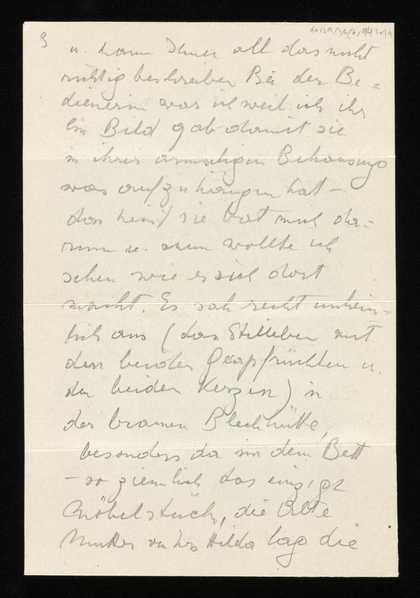 3
u. kann Ihnen all das nicht
richtig beschreiben Bei der Be=
dienerin war ich weil ich ihr
ein Bild gab damit sie
in ihrer armseligen Behausung
was aufzuhängen hat –
das heißt sie bat mich da=
rum u. nun wollte ich
sehen wie es sich dort
macht. Es sah recht unheim=
lich aus (das Stilleben mit
den beiden früchten u.
den beiden Kerzen) in
der braunen Blechhütte,
besonders da in dem Bett
– so ziemlich das einzige
Möbelstück, die alte
Mutter Hilda lag die